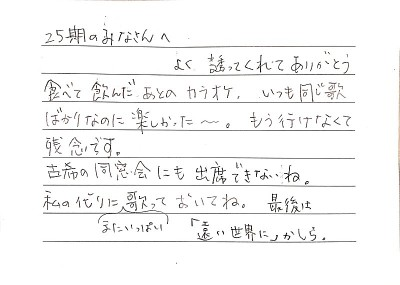 25期のみなさんへ
よく誘ってくれてありがとう
食べて飲んだあとのカラオケ。いつも同じ歌
ばかりなのに楽しかった〜。もう行けなくて
残念です。
古希の同窓会にも出席できないね。
私の代りに歌っておいてね。最後は
みたいっぱい
「遠い世界に」かしら。